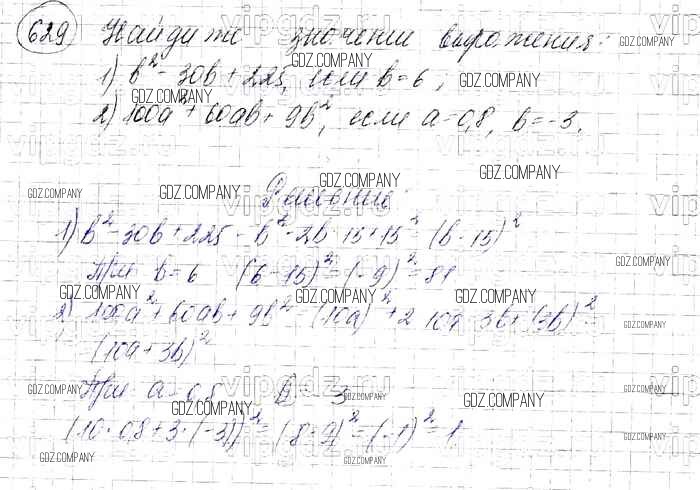 629 Найдите значение выражения:
1) b² - 30b + 225, если b = 6;
2) 100a² + 60ab + 9b², если a = 0,8, b = -3.
Решение:
1) b² - 30b + 225 = b² - 2b · 15 + 15² = (b - 15)²
При b = 6 (6 - 15)² = (-9)² = 81
2) 100a² + 60ab + 9b² = (10a)² + 2 · 10a · 3b + (3b)² =
(10a + 3b)²
При a = 0,8 b = -3
(10 · 0,8 + 3 · (-3))² = (8 - 9)² = (-1)² = 1
GDZ.COMPANY
vipgdz.ru